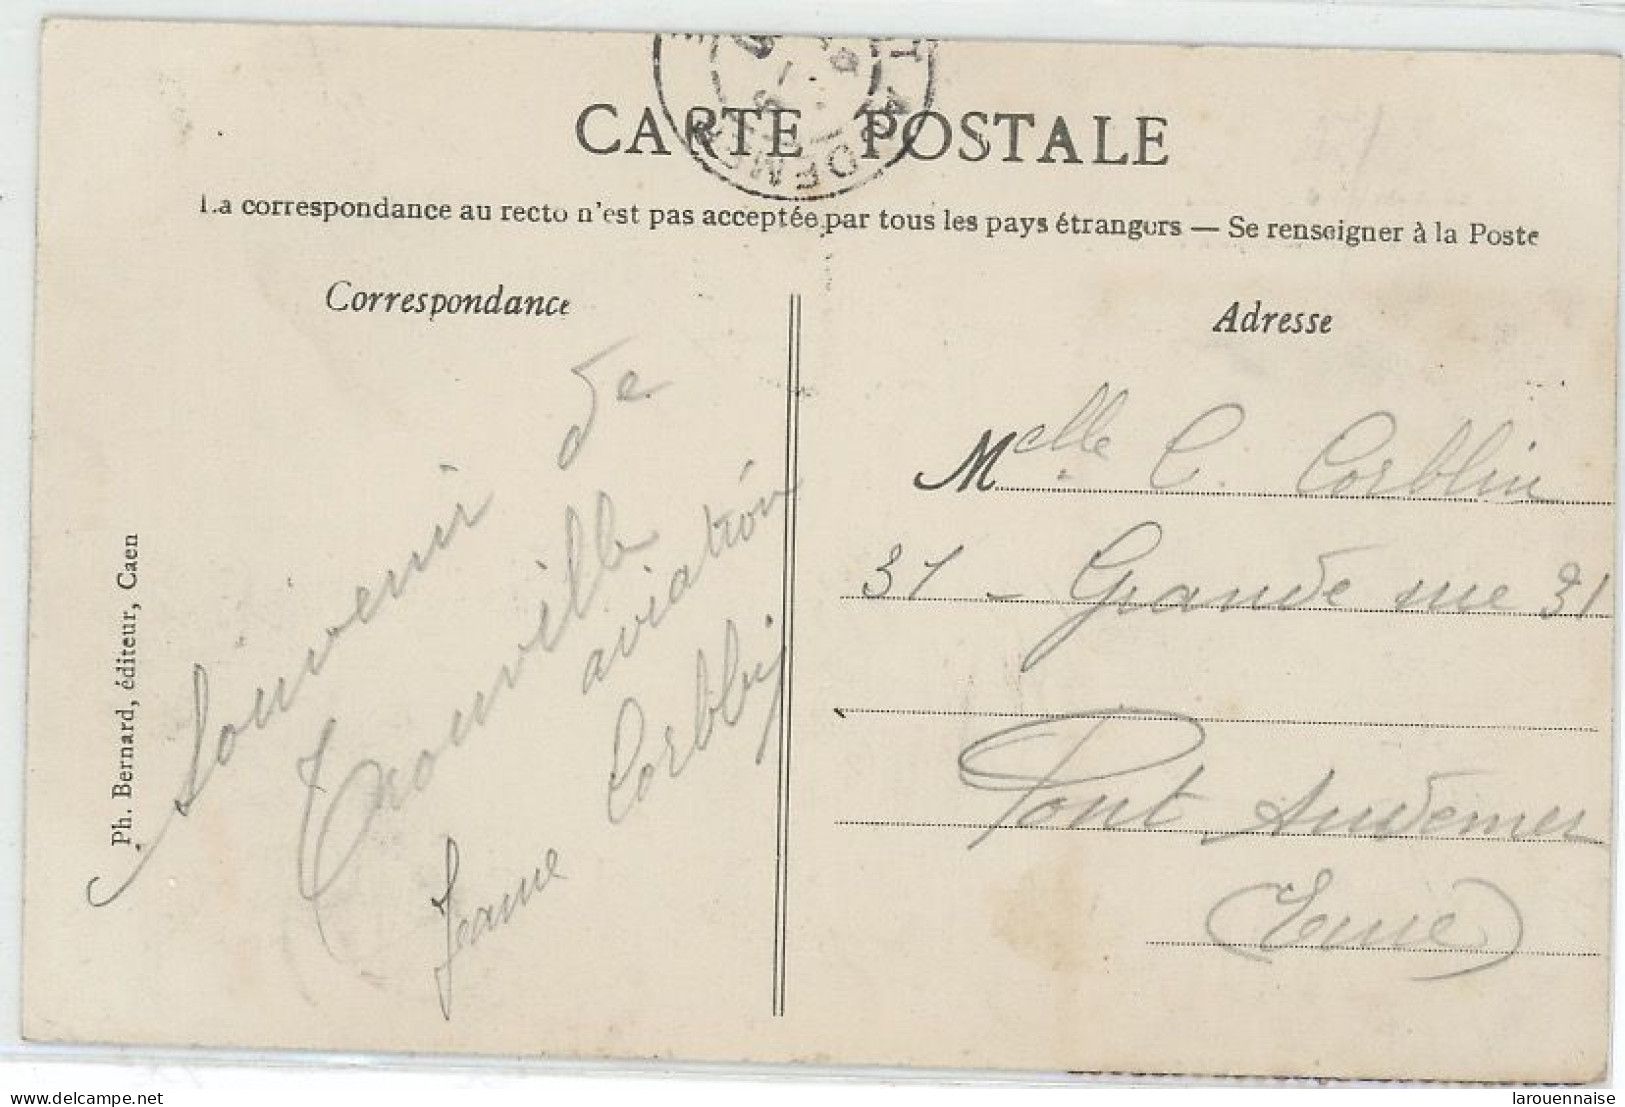 CARTE POSTALE
La correspondance au recto n'est pas acceptée par tous les pays étrangers — Se renseigner à la Poste
Correspondance
Souvenir de
Trouville
aviation
Jeanne Corbby
Ph. Bernard, éditeur, Caen
Adresse
Melle C. Corblin
31 - Grande rue 31
Pont Audemer
(Eure)
delcampe.net
larouennaise